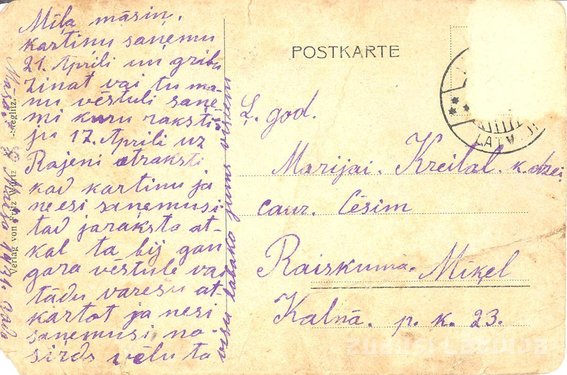 Mīļa māsiņ.
kartiņu saņemu
21. Aprili un gribu
Zinat vai tu ma-
nu vēstuli saņe
mi kuru rakstij
ju 17. Aprili uz
Rajeni atraksti
kad kartiņu ja
ne esi saņemusi
tad jaraksta at-
kal ta bij gan
gara vēstule vai
tādu varesu at
kartot ja nesi
saņemusi no
sirds vēlu ta
visu labako jums visiem
POSTKARTE
Ļ. god.
Marijai. Kreital. k. dzei
caur. Cēsim
Raiskuma. Mikel
Kalnā. p. k. 23.
LATV
Verlag von